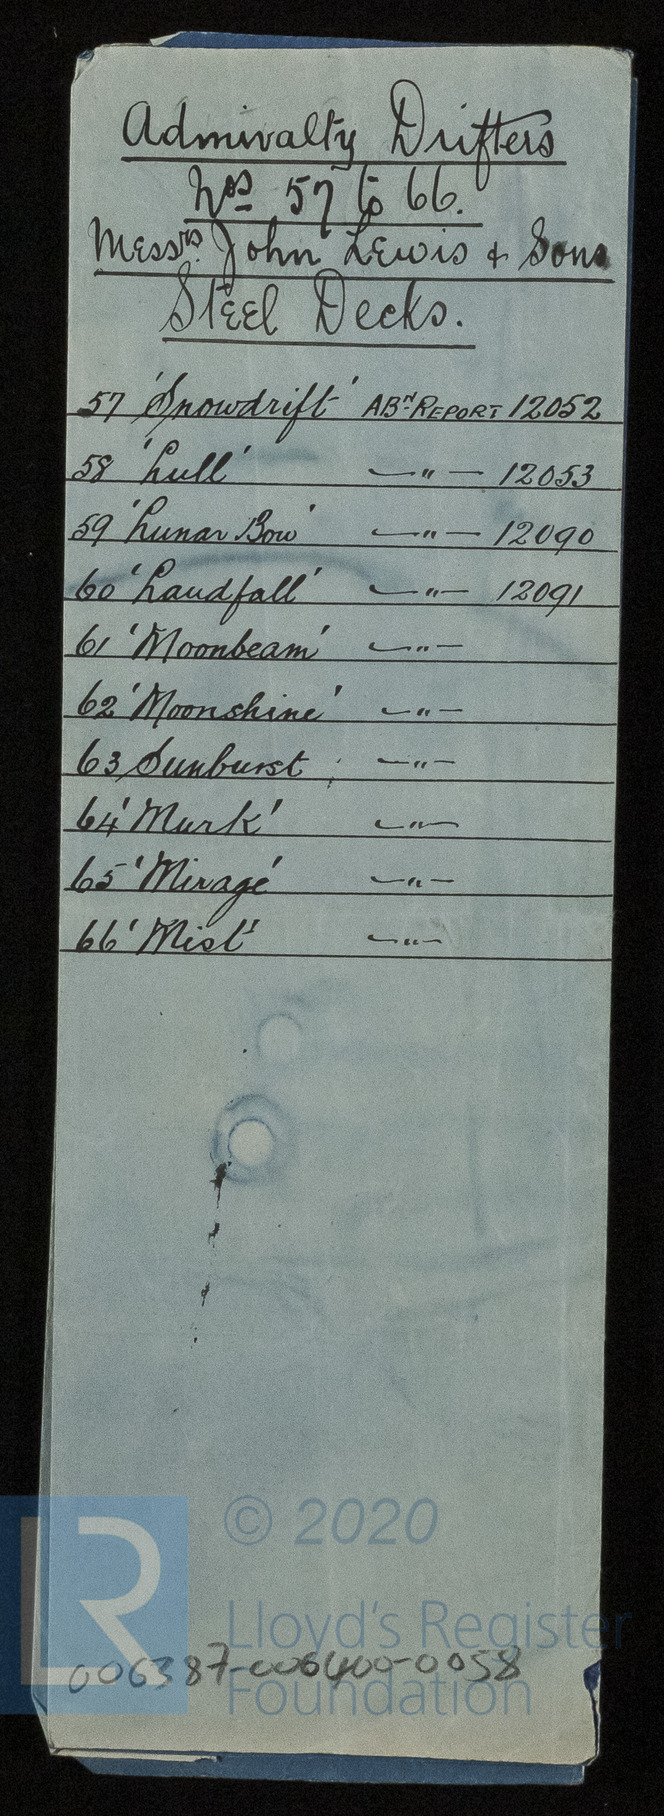 Admiralty Drifters
Nos 57 to 66.
Messrs. John Lewis & Sons
Steel Decks.
57 'Snowdrift' ABN REPORT 12052
58 'Lull' —"— 12053
59 'Lunar Bow' —"— 12090
60 'Landfall' —"— 12091
61 'Moonbeam' —"—
62 'Moonshine' —"—
63 Sunburst —"—
64 'Murk' —"—
65 'Mirage' —"—
66 'Mist' —"—
© 2020
LR
Lloyd's Register
Foundation
006387-006400-0058